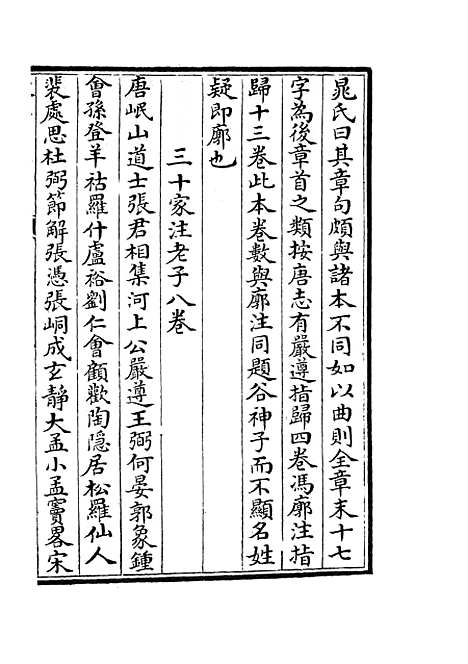 晁氏曰其章句頗與諸本不同如以曲則全章末十七
字為後章首之類按唐志有嚴遵指歸四卷馮廓注指
歸十三卷此本卷數與廓注同題谷神子而不顯名姓
疑即廓也
三十家注老子八卷
唐岷山道士張君相集河上公嚴遵王弼何晏郭象鍾
會孫登羊祜羅什盧裕劉仁會顧歡陶隱居松羅仙人
裴處思杜弼節解張憑張嗣成玄靜大孟小孟竇畧宋